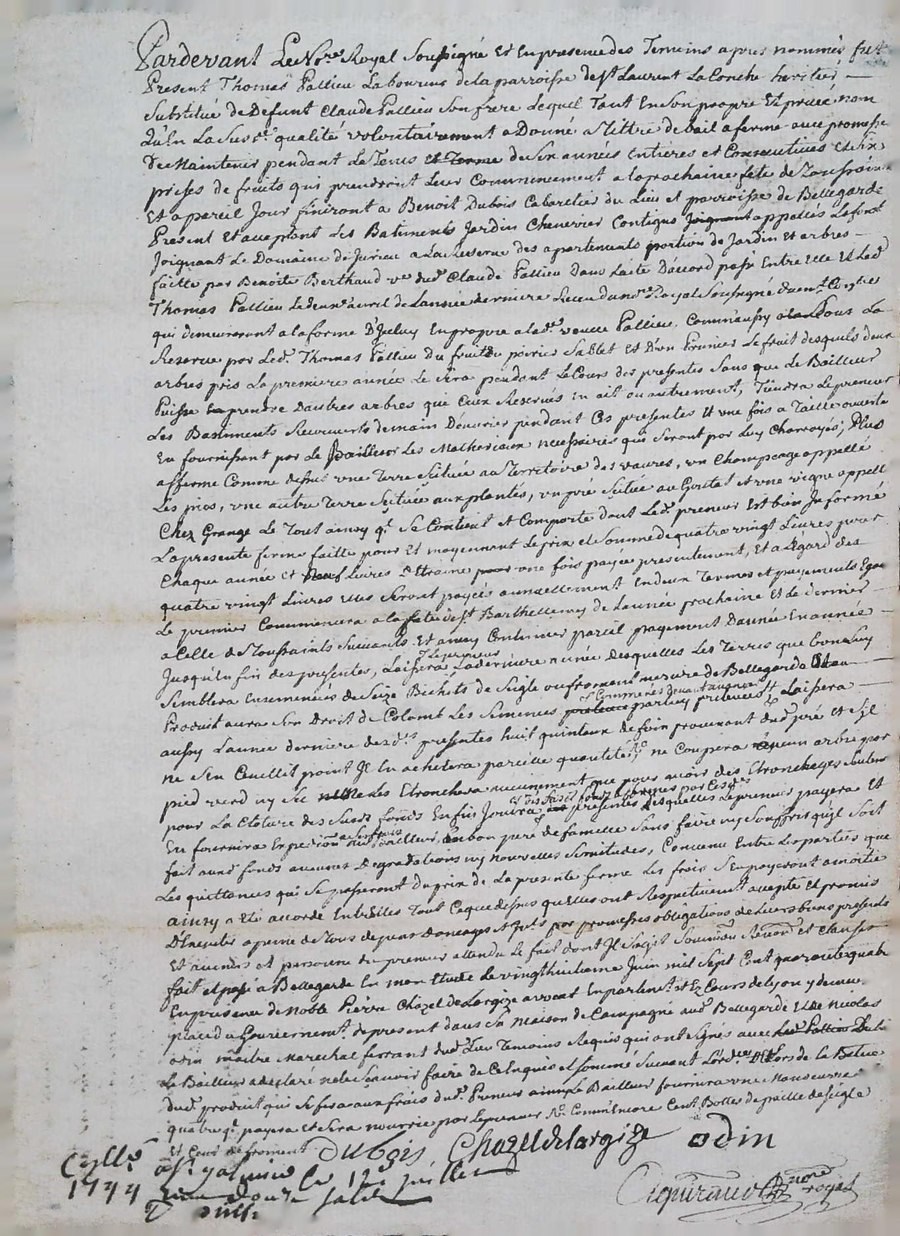 Pardevant Le No.re Royal Soussigné Et En presence des Temoins apres nommés fut
Present Thomas Pallieu Laboureur de la parroisse de St Laurent La Conche heritier
Substitué de Deffunt Claude Pallieu Son frere Lequel Tant En Son propre Et privé nom
Qu'En La Sus.te qualité volontairement a Donné a Tittre de bail a ferme avec promesse
De Maintenir pendant Le Tems et Terme de Six années Entieres et Consecutives Et Six
prises de fruits qui prendront Leur Commencement a la prochaine fête de Toussaint
Et a pareil Jour finiront a Benoit Dubois Cabaretier du Lieu et parroisse de Bellegarde
Present Et acceptant Les Batiments Jardin Chenevier Contigus Joignant appallés
Joignant Le Domaine de a La Reserve des apartements portion de Jardin Et arbres
faitte par Benoite Berthaud v.ve dud. Claude Pallieu Dans L'acte D'accord passé Entre Elle et Led
Thomas Pallieu Le avril de L'année derniere No.re Royal Soussigné
qui demeureront a la forme D'Iceluy En propre a lad.e veuve Pallieu, Comm'aussy Sous La
Reserve par Led. Thomas Pallieu du fruit du poirier Sablet Et D'un Prunier Le fruit desquels deux
arbres pris La premiere année Le Sera pendant Le Cours des presentes Sans que Le Bailleur
Puisse En prendre D'autres arbres que Ceux Reservés En ait ou autrement, Tiendra Le preneur
Les Bastiments Recouverts de main D'ouvrier pendant Ces presentes Et une fois a Taille ouverte
En fournissant par Le Bailleur Les Matheriaux necessaires qui Seront par Luy Charroyés; Plus
afferme Comme dessus une Terre Scituée au Territoire des vaures, un Champeage appellé
Les pros, une autre Terre Scituée aux plantés, un pré Scitué au Goutet et une vigne appellé
Chez Grange Le Tout ainsy q.l Se Contient et Comporte dont Led. preneur Est bien Informé
La presente ferme faitte pour Et moyennant Le prix et Somme de quatre vingt Livres pour
Chaque année et Livres D'Etraine pour une fois payée presentement, Et a L'égard des
quatre vingt Livres Elles Seront payées annuellement En deux Termes et payements Egaux
Le premier Commencera a la fête de St Barthellemy de L'année prochaine et Le dernier
a Celle de Toussaints Suivants Et ainsy Continuer pareil payement D'année En année
Jusqu'a fin des presentes, Laissera Le preneur La derniere année Desquelles Les Terres que bon Luy
Semblera Ensemencées de Seize Bichets de Seigle ou froment mesure de Bellegarde Et au
Produit aura Son Droit de Colome Les Semences prelevées Laissera
aussy L'année derniere des d.es presentes huit quintaux de foin provenant dud. pré et S'il
ne S'en Cueillit point Il En achetera pareille quantité, ne Coupera aucun arbre par
pied verd ny Sec Les Etronchera aucunement que pour avoir des Etronchages
pour La Cloture des Susd. fonds Enfin Jouira presentes Desquelles Le preneur payera Et
En fournira Expedition aud. Bailleur, En bon pere de famille Sans faire ny Souffrir qu'il Soit
fait aud. fonds aucunes Degradations ny nouvelles Servitudes, Convenu Entre Les parties que
Les quittances qui Se passeront du prix de La presente ferme Les frais S'En payeront a moitié
ainsy a Eté accordé Entr'Elles Tout Ceque dessus qu'elles ont Respectivement accepté Et promis
D'Executer a peine de Tous depens Domages Et Int.s par promesses obligations de Leurs biens presents
Et avenirs et personne du preneur attendu Le fait dont Il S'agit Soumissions Renon.ons et Clauses
fait et passé a Bellegarde En mon Etude Le vingthuitieme Juin mil Sept Cent quarante quatre
En presence de Noble Pierre Chazel de Largize avocat En parlem.t et Ez Cours de Lyon y demeu.t
placed' Gouvernem.t de present dans Sa Maison de Campagne aud. Bellegarde Et de Nicolas
odin maitre Marechal ferrant dud. Lieu Temoins Requis qui ont Signés avec
Le Bailleur a declaré ne le Scavoir faire de Ce Enquis et Sommé Suivant L'ord.ce
dud. produit qui Se fera aux frais du d. Preneur Bailleur fournira une Manoeuvre
quatre q.l payera et Sera nourrie par Le preneur Comm'Encore Cent Bottes de paille de Seigle
Et Cent de froment
Dubois Chazel de Largize odin
Cllé a St galmier le 12e juillet
1744 Douze sols
no.re royal